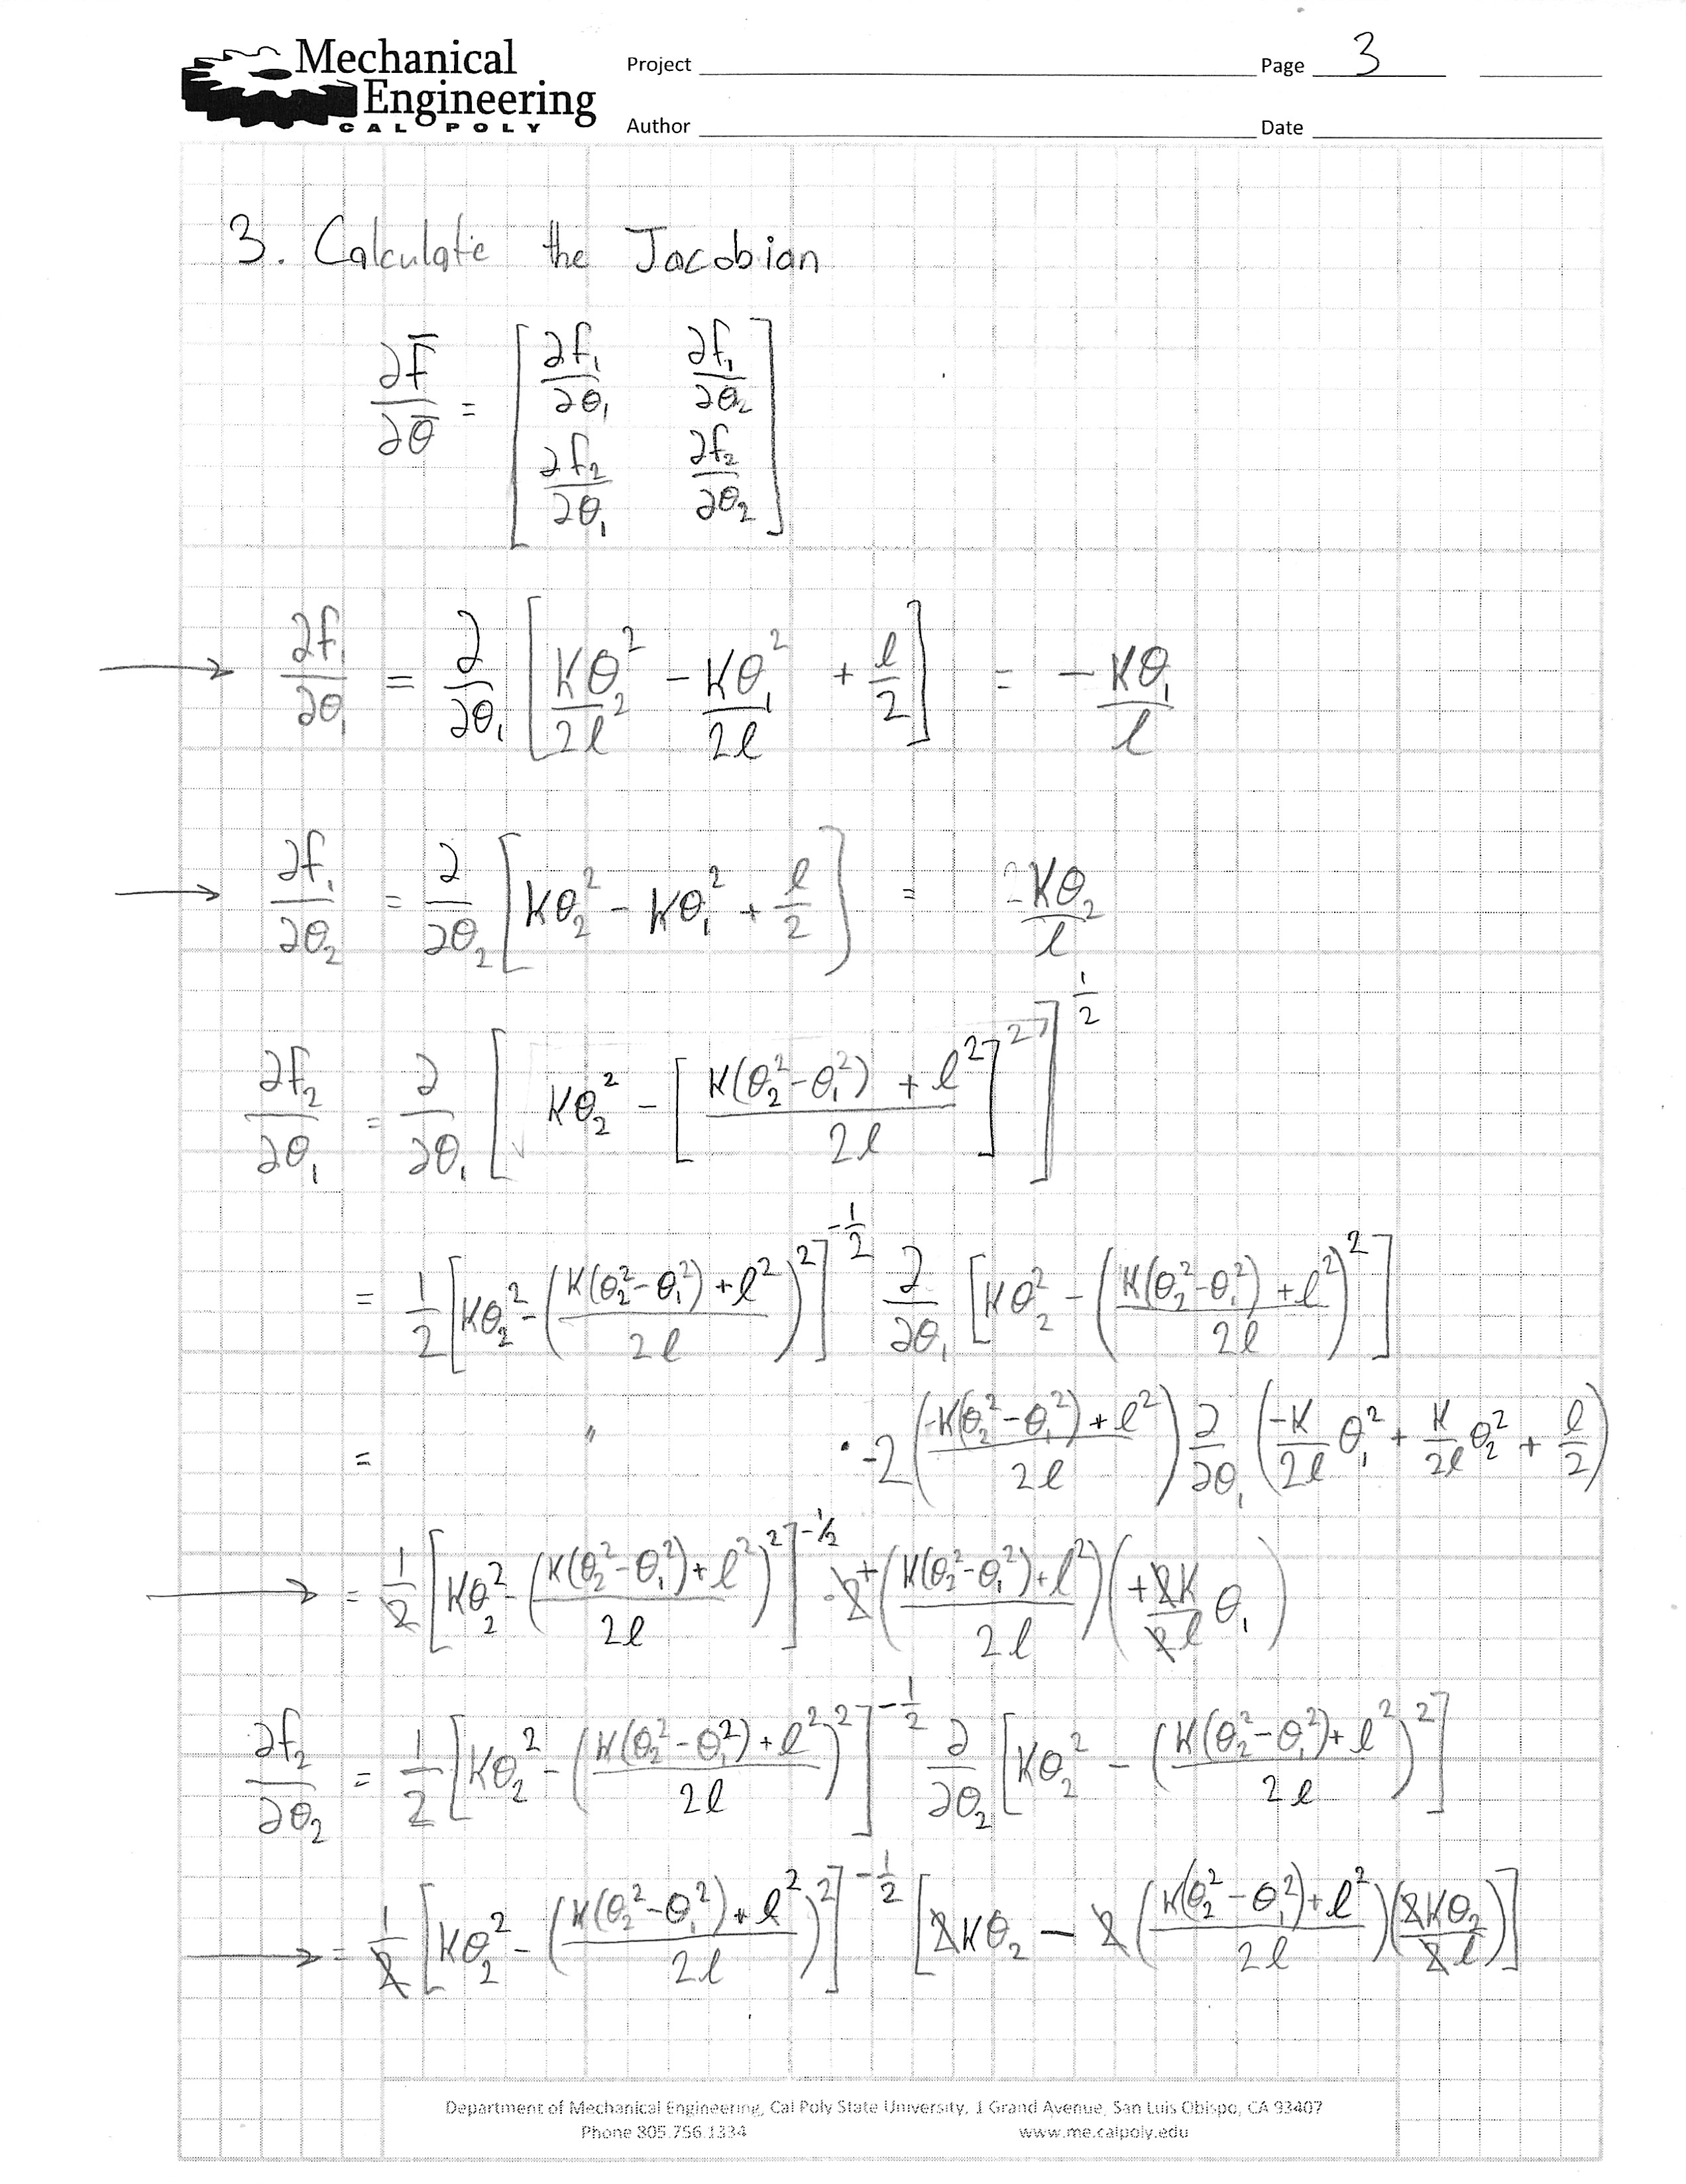 Mechanical
Engineering
CAL POLY
Project
Page 3
Author
Date
3. Calculate the Jacobian
∂F̅/∂θ̅ = [ ∂f₁/∂θ₁ ∂f₁/∂θ₂
∂f₂/∂θ₁ ∂f₂/∂θ₂ ]
→ ∂f₁/∂θ₁ = ∂/∂θ₁ [ Kθ₂²/2l - Kθ₁²/2l + l/2 ] = -Kθ₁/l
→ ∂f₁/∂θ₂ = ∂/∂θ₂ [ Kθ₂² - Kθ₁² + l/2 ] = Kθ₂/l
∂f₂/∂θ₁ = ∂/∂θ₁ [ Kθ₂² - [ (K(θ₂²-θ₁²) + l²)/2l ]² ]^(1/2)
= 1/2 [ Kθ₂² - ( (K(θ₂²-θ₁²) + l²)/2l )² ]^(-1/2) ∂/∂θ₁ [ Kθ₂² - ( (K(θ₂²-θ₁²) + l²)/2l )² ]
= " · -2 ( (-K(θ₂²-θ₁²) + l²)/2l ) ∂/∂θ₁ ( -K/2l θ₁² + K/2l θ₂² + l/2 )
→ = 1/2 [ Kθ₂² - ( (K(θ₂²-θ₁²) + l²)/2l )² ]^(-1/2) · 2+ ( (K(θ₂²-θ₁²) + l²)/2l ) ( +2K/2l θ₁ )
∂f₂/∂θ₂ = 1/2 [ Kθ₂² - ( (K(θ₂²-θ₁²) + l²)/2l )² ]^(-1/2) ∂/∂θ₂ [ Kθ₂² - ( (K(θ₂²-θ₁²) + l²)/2l )² ]
→ = 1/2 [ Kθ₂² - ( (K(θ₂²-θ₁²) + l²)/2l )² ]^(-1/2) [ 2Kθ₂ - 2 ( (K(θ₂²-θ₁²) + l²)/2l ) ( 2Kθ₂/2l ) ]
Department of Mechanical Engineering, Cal Poly State University, 1 Grand Avenue, San Luis Obispo, CA 93407
Phone 805.756.1334 www.me.calpoly.edu